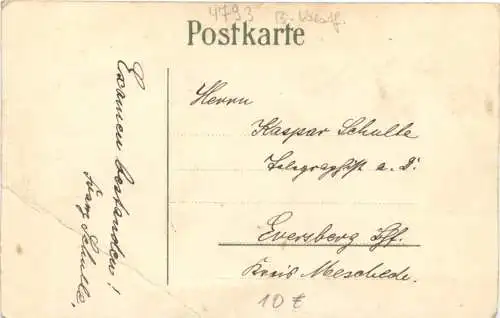 4793 B-Westf.
Postkarte
Examen bestanden!
Franz Schulte,
Herrn
Kaspar Schulte
Telegraphist a. D.
Eversberg
Kreis Meschede.
10 €